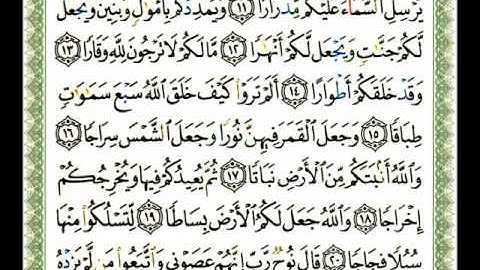 يُرْسِلِ السَّمَاءَ عَلَيْكُم مِّدْرَارًا ١١ وَيُمْدِدْكُم بِأَمْوَٰلٍ وَبَنِينَ وَيَجْعَل
لَّكُمْ جَنَّٰتٍ وَيَجْعَل لَّكُمْ أَنْهَٰرًا ١٢ مَّا لَكُمْ لَا تَرْجُونَ لِلَّهِ وَقَارًا ١٣
وَقَدْ خَلَقَكُمْ أَطْوَارًا ١٤ أَلَمْ تَرَوْا۟ كَيْفَ خَلَقَ اللَّهُ سَبْعَ سَمَٰوَٰتٍ
طِبَاقًا ١٥ وَجَعَلَ الْقَمَرَ فِيهِنَّ نُورًا وَجَعَلَ الشَّمْسَ سِرَاجًا ١٦
وَاللَّهُ أَنۢبَتَكُم مِّنَ الْأَرْضِ نَبَاتًا ١٧ ثُمَّ يُعِيدُكُمْ فِيهَا وَيُخْرِجُكُمْ
إِخْرَاجًا ١٨ وَاللَّهُ جَعَلَ لَكُمُ الْأَرْضَ بِسَاطًا ١٩ لِّتَسْلُكُوا۟ مِنْهَا
سُبُلًا فِجَاجًا ٢٠ قَالَ نُوحٌ رَّبِّ إِنَّهُمْ عَصَوْنِي وَاتَّبَعُوا۟ مَن لَّمْ يَزِدْهُ